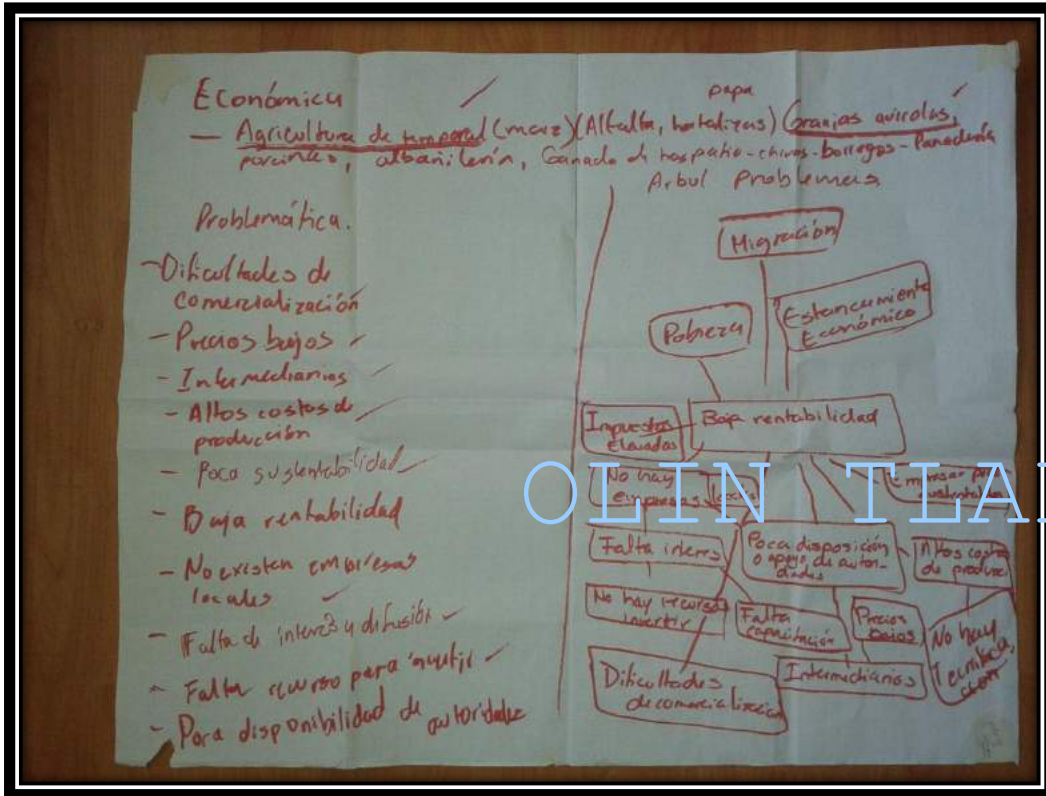 Económica
papa
— Agricultura de temporal (maiz) (Alfalfa, hortalizas) Granjas avicolas,
porcinas, albañileria, Ganado de traspatio - chivos - borregos - Panaderia
Arbol Problemas
Problemática.
- Dificultades de
comercialización
- Precios bajos
- Intermediarios
- Altos costos de
producción
- Poca sustentabilidad
- Baja rentabilidad
- No existen empresas
locales
- Falta de interés y difusión
- Falta recurso para invertir
- Poca disponibilidad de autoridades
Migración
Pobreza
Estancamiento
Económico
Impuestos
Elevados
Baja rentabilidad
No hay
empresas
locales
Empresas
sustentables
Falta interes
Poca disposición
o apoyo de autori-
dades
Altos costos
de produc
No hay recurso
invertir
Falta
capacitación
Precios
bajos
No hay
Tecnifica
ción
Dificultades
de comercialización
Intermediarios
OLIN TLA